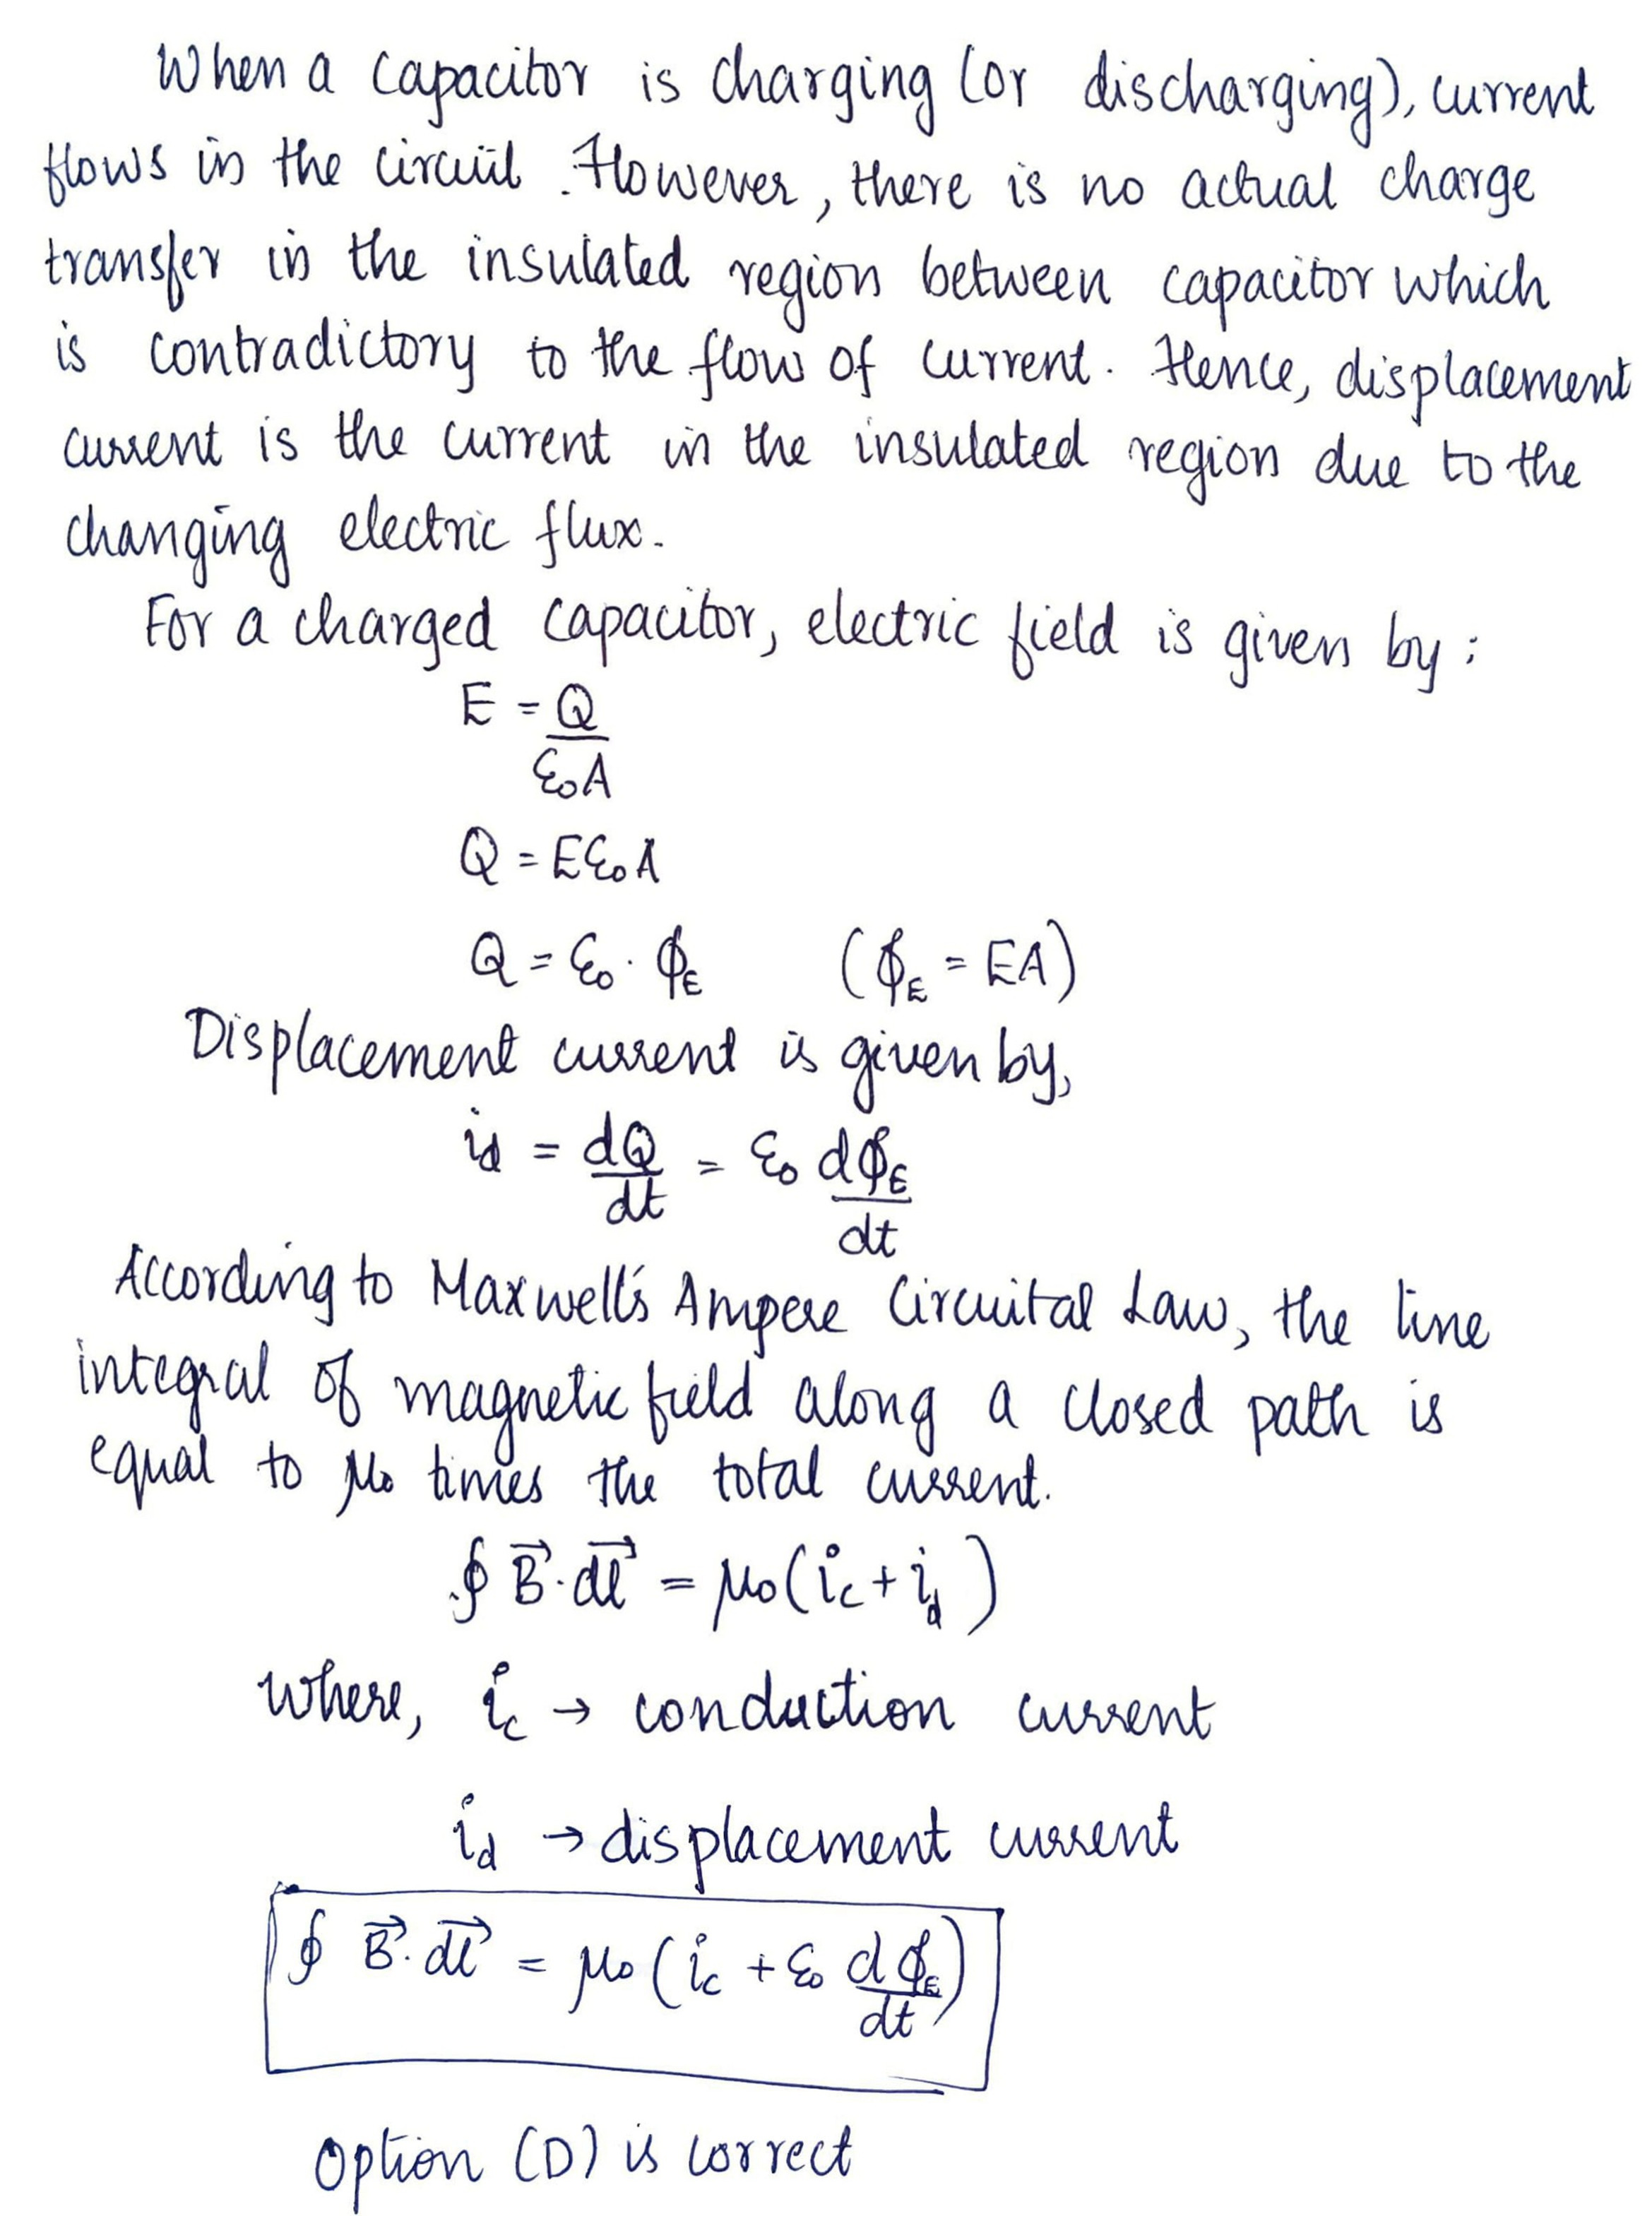 When a capacitor is charging (or discharging), current
flows in the circuit. However, there is no actual charge
transfer in the insulated region between capacitor which
is contradictory to the flow of current. Hence, displacement
current is the current in the insulated region due to the
changing electric flux.
For a charged capacitor, electric field is given by:
E = Q/ε₀A
Q = Eε₀A
Q = ε₀ · ϕ_E (ϕ_E = EA)
Displacement current is given by,
i_d = dQ/dt = ε₀ dϕ_E/dt
According to Maxwell's Ampere Circuital Law, the line
integral of magnetic field along a closed path is
equal to μ₀ times the total current.
∮ B⃗·dl⃗ = μ₀(i_c + i_d)
where, i_c → conduction current
i_d → displacement current
∮ B⃗·dl⃗ = μ₀(i_c + ε₀ dϕ_E/dt)
Option (D) is correct